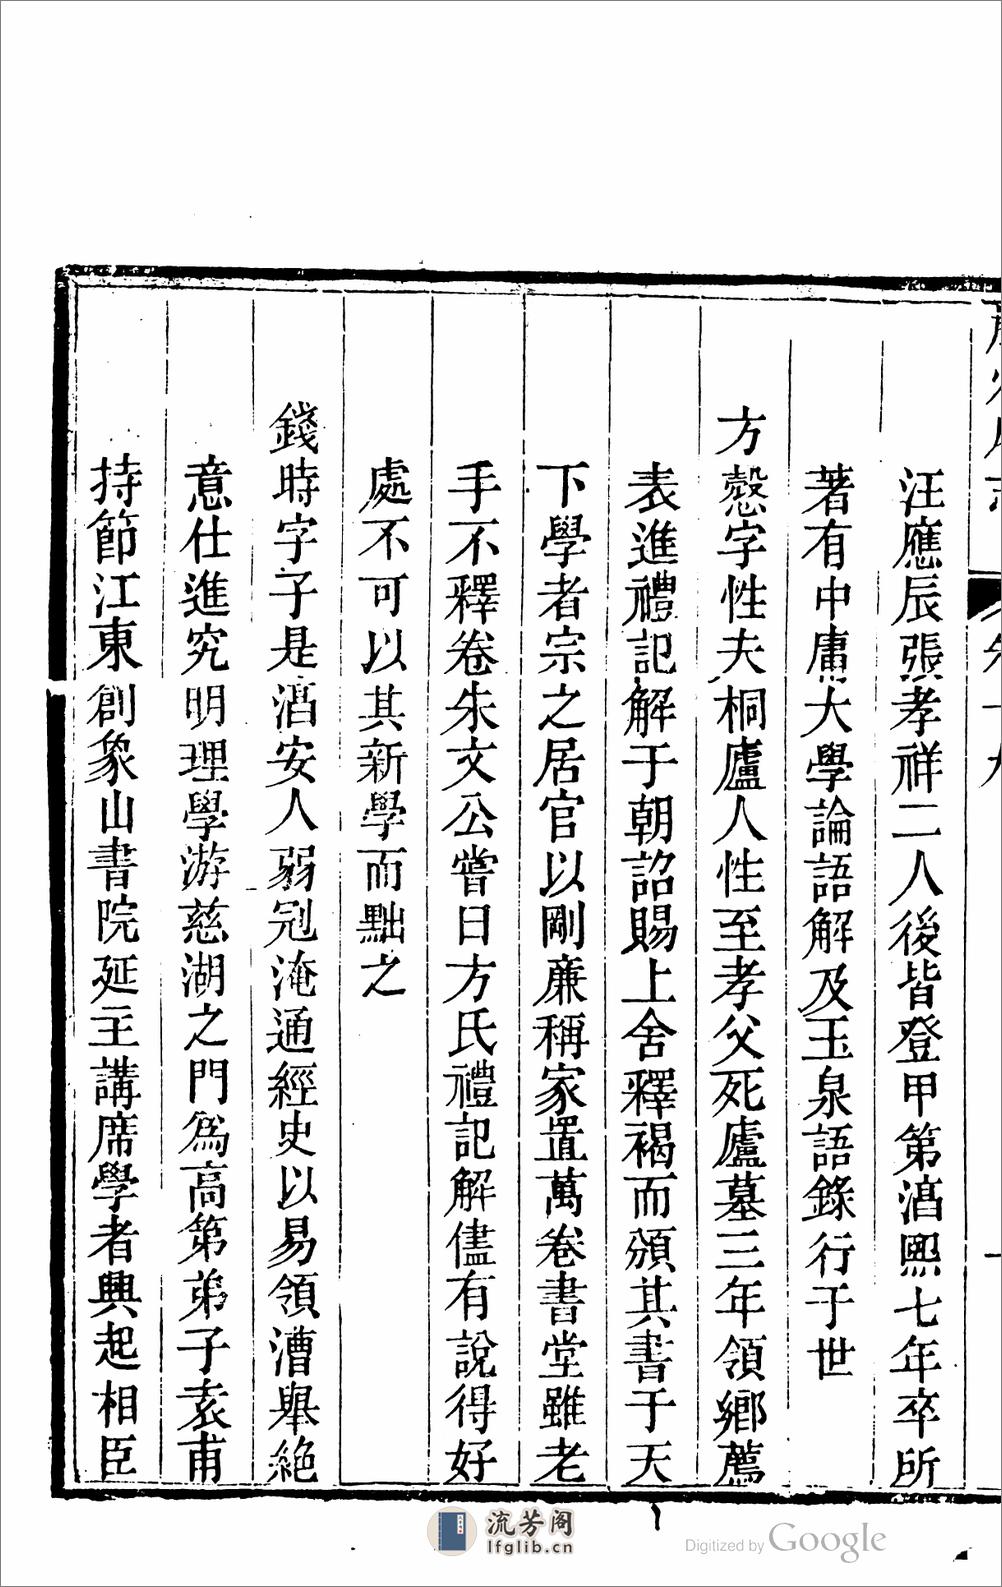 汪應辰張孝祥二人後皆登甲第淳熙七年卒所
著有中庸大學論語解及玉泉語錄行于世
方慤字性夫桐廬人性至孝父死廬墓三年領鄉薦
表進禮記解于朝詔賜上舍釋褐而頒其書于天
下學者宗之居官以剛廉稱家置萬卷書堂雖老
手不釋卷朱文公嘗曰方氏禮記解儘有說得好
處不可以其新學而黜之
錢時字子是淳安人弱冠淹通經史以易領漕舉絶
意仕進究明理學游慈湖之門爲高第弟子袁甫
持節江東創象山書院延主講席學者興起相臣
流芳阁
lfglib.cn
Digitized by Google